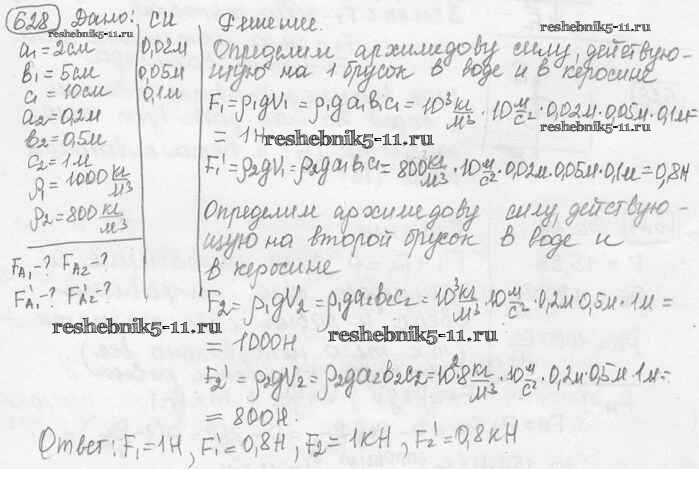 628 Дано: СИ Решение.
a₁ = 2см 0,02м
b₁ = 5см 0,05м
c₁ = 10см 0,1м
a₂ = 0,2м
b₂ = 0,5м
c₂ = 1м
ρ₁ = 1000 кг/м³
ρ₂ = 800 кг/м³
F_A₁ - ? F_A₂ - ?
F'_A₁ - ? F'_A₂ - ?
Определим архимедову силу, действую-
щую на 1 брусок в воде и в керосине
F₁ = ρ₁gV₁ = ρ₁ga₁b₁c₁ = 10³ кг/м³ · 10 м/с² · 0,02м · 0,05м · 0,1м =
= 1Н
reshebnik5-11.ru
reshebnik5-11.ru
reshebnik5-11.ru
F₁' = ρ₂gV₁ = ρ₂ga₁b₁c₁ = 800 кг/м³ · 10 м/с² · 0,02м · 0,05м · 0,1м = 0,8Н
Определим архимедову силу, действую-
щую на второй брусок в воде и
в керосине
F₂ = ρ₁gV₂ = ρ₁ga₂b₂c₂ = 10³ кг/м³ · 10 м/с² · 0,2м · 0,5м · 1м =
= 1000Н
reshebnik5-11.ru
reshebnik5-11.ru
F₂' = ρ₂gV₂ = ρ₂ga₂b₂c₂ = 10²8 кг/м³ · 10 м/с² · 0,2м · 0,5м · 1м =
= 800Н.
Ответ: F₁ = 1Н, F₁' = 0,8Н, F₂ = 1кН, F₂' = 0,8кН